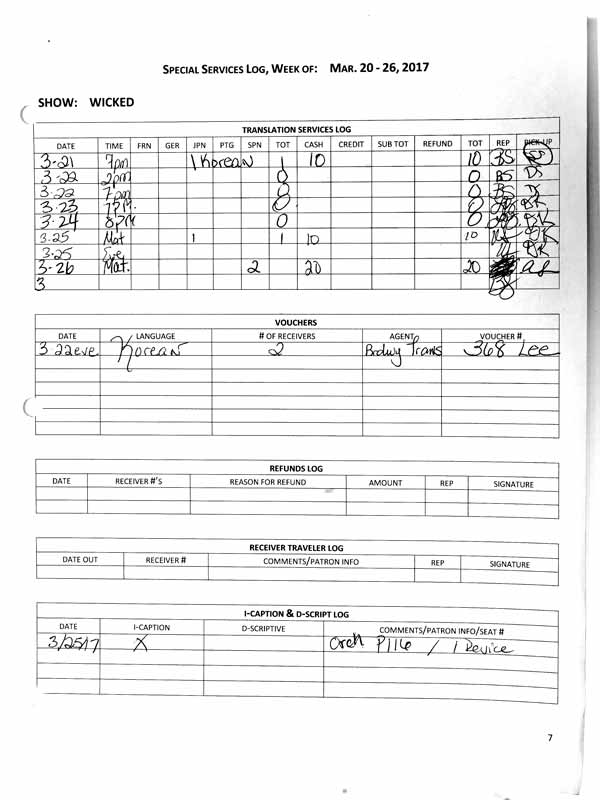 SPECIAL SERVICES LOG, WEEK OF: MAR. 20 - 26, 2017
SHOW: WICKED
TRANSLATION SERVICES LOG
DATE TIME FRN GER JPN PTG SPN TOT CASH CREDIT SUB TOT REFUND TOT REP PICK-UP
3-21 7pm 1 Korean 1 10 10 BS
3-22 2pm 0 0 BS DS
3-22 7pm 0 0 BS
3-23 7PM. 0 0 BK
3-24 8PM 0 0 BK
3.25 Mat 1 1 10 10
3.25 Eve
3-26 Mat. 2 20 20
3
VOUCHERS
DATE LANGUAGE # OF RECEIVERS AGENT VOUCHER #
3 22 eve Korean 2 Brdwy Trans 368 Lee
REFUNDS LOG
DATE RECEIVER #'S REASON FOR REFUND AMOUNT REP SIGNATURE
RECEIVER TRAVELER LOG
DATE OUT RECEIVER # COMMENTS/PATRON INFO REP SIGNATURE
I-CAPTION & D-SCRIPT LOG
DATE I-CAPTION D-SCRIPTIVE COMMENTS/PATRON INFO/SEAT #
3/25/17 X Orch P116 / 1 Device
7